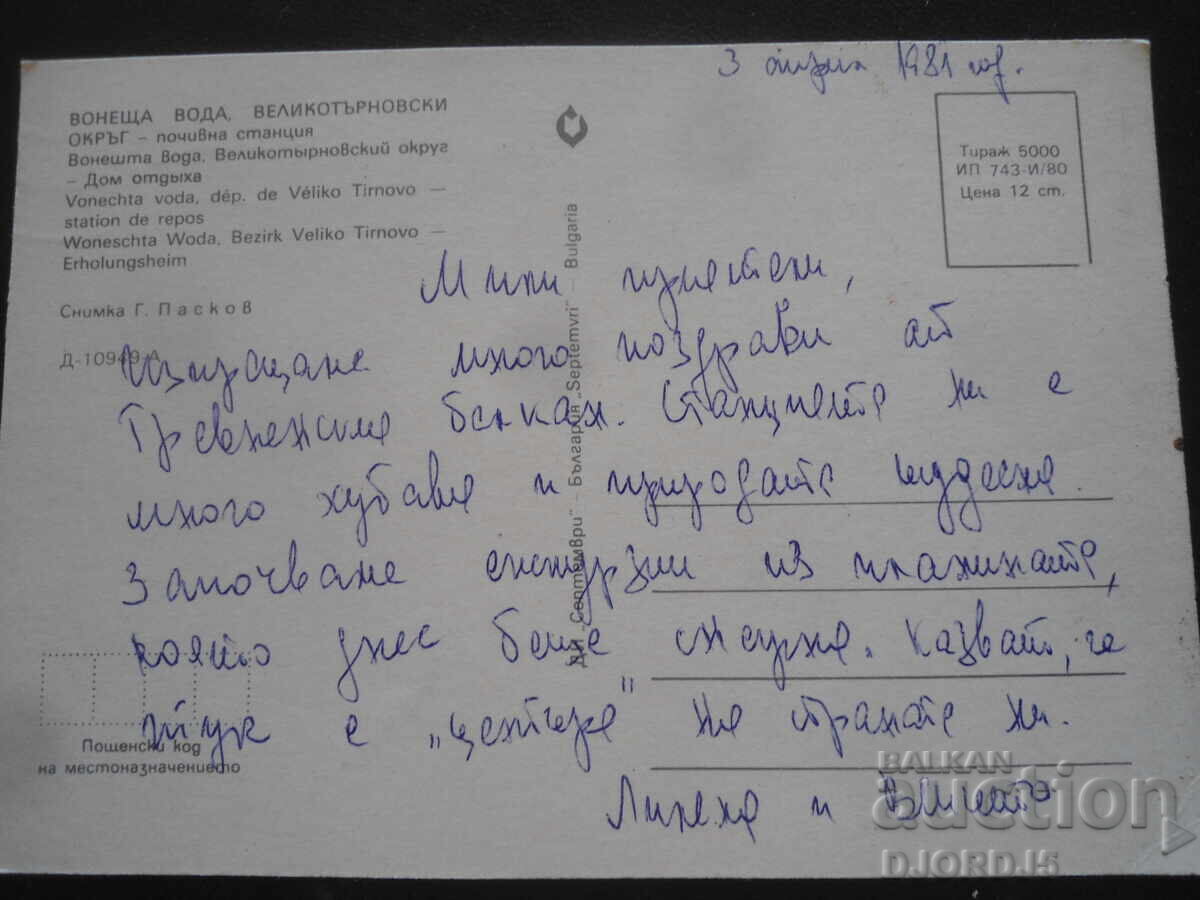 3 април 1981 год.
ВОНЕЩА ВОДА, ВЕЛИКОТЪРНОВСКИ
ОКРЪГ – почивна станция
Вонешта вода, Великотырновский округ
– Дом отдыха
Vonechta voda, dép. de Véliko Tirnovo —
station de repos
Woneschta Woda, Bezirk Veliko Tirnovo —
Erholungsheim
Снимка Г. Пасков
Д-10949-А
ДП „Септември" – България „Septemvri" – Bulgaria
Тираж 5000
ИП 743-И/80
Цена 12 ст.
Мили приятели,
Изпращаме много поздрави от
Тревненския балкан. Станцията ни е
много хубава и природата чудесна.
Започваме екскурзии из планината,
която днес беше снежна. Казват, че
тук е „центъра" на страната ни.
Пощенски код
на местоназначението
BALKAN
auction
DJORDJ5